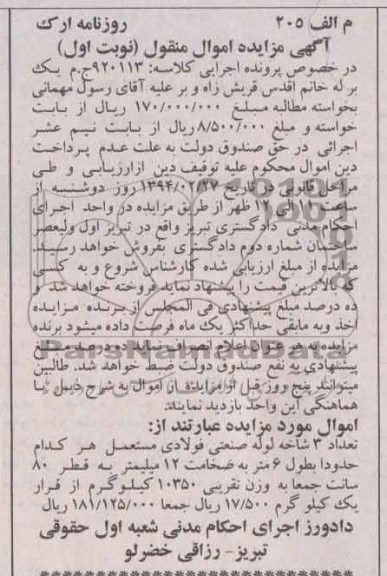 م الف ۲۰۵ روزنامه ارک
آگهی مزایده اموال منقول (نوبت اول)
در خصوص پرونده اجرایی کلاسه: ۹۲۰۱۱۳ج.م یک
بر له خانم اقدس قریش زاه و بر علیه آقای رسول مهمانی
بخواسته مطالبه مبلغ ۱۷۰/۰۰۰/۰۰۰ ریال از بابت
خواسته و مبلغ ۸/۵۰۰/۰۰۰ ریال از بابت نیم عشر
اجرائی در حق صندوق دولت به علت عدم پرداخت
دین اموال محکوم علیه توقیف دین ازارزیابی و طی
مراحل قانونی در تاریخ ۱۳۹۴/۰۲/۲۷ روز دوشنبه از
ساعت ۱۱ الی ۱۲ ظهر از طریق مزایده در واحد اجرای
احکام مدنی دادگستری تبریز واقع در تبریز اول ولیعصر
ساختمان شماره دوم دادگستری بفروش خواهد رسید.
مزایده از مبلغ ارزیابی شده کارشناس شروع و به کسی
که بالاترین قیمت را پیشنهاد نماید فروخته خواهد شد و
ده درصد مبلغ پیشنهادی فی المجلس از برنده مزایده
اخذ وبه مابقی حداکثر یک ماه فرصت داده میشود برنده
مزایده به هر عنوان اعلام انصراف نماید ده درصد مبلغ
پیشنهادی به نفع صندوق دولت ضبط خواهد شد. طالبین
میتوانند پنج روز قبل از مزایده از اموال به شرح ذیل با
هماهنگی این واحد بازدید نمایند.
اموال مورد مزایده عبارتند از:
تعداد ۳ شاخه لوله صنعتی فولادی مستعمل هر کدام
حدودا بطول ۶ متر به ضخامت ۱۲ میلیمتر به قطر ۸۰
سانت جمعا به وزن تقریبی ۱۰۳۵۰ کیلوگرم از قرار
یک کیلو گرم ۱۷/۵۰۰ ریال جمعا ۱۸۱/۱۲۵/۰۰۰ ریال
دادورز اجرای احکام مدنی شعبه اول حقوقی
تبریز- رزاقی خضرلو
ParsNamadData